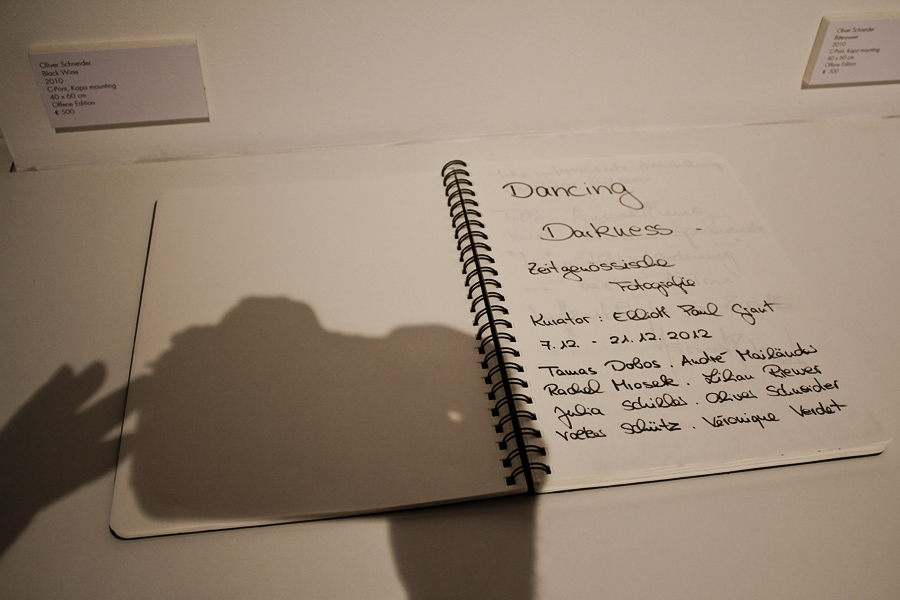 Oliver Schneider
Black Wine
2010
C-Print, Kapa mounting
40 x 60 cm
Offene Edition
€ 500
Oliver Schneider
Bittersweet
2010
C-Print, Kapa mounting
40 x 60 cm
Offene Edition
€ 500
Dancing
Darkness -
Zeitgenössische
Fotografie
Kurator: Elliott Paul Grant
7.12. - 21.12.2012
Tamas Dobos. André Mailänder
Rachel Mrosek. Lilian Brewer
Julia Schiller. Oliver Schneider
Volker Schütz. Véronique Verdet